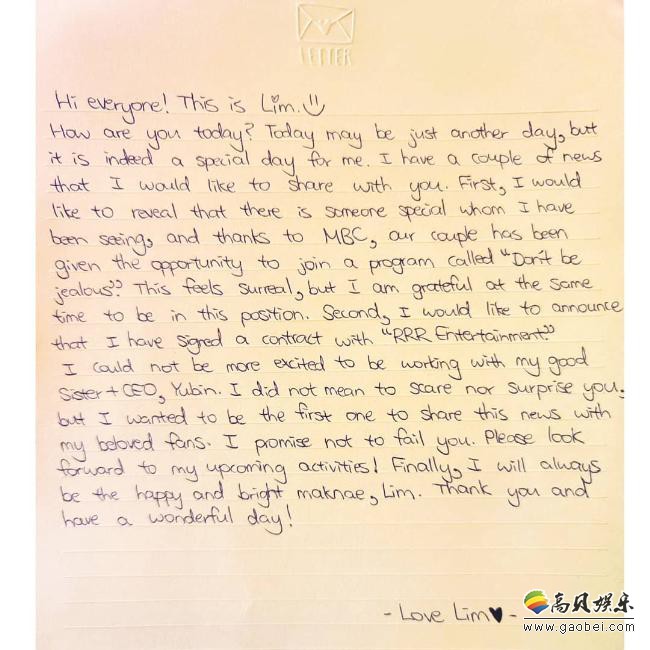 LETTER
Hi everyone! This is Lim.
How are you today? Today may be just another day, but
it is indeed a special day for me. I have a couple of news
that I would like to share with you. First, I would
like to reveal that there is someone special whom I have
been seeing, and thanks to MBC, our couple has been
given the opportunity to join a program called "Don't be
jealous". This feels surreal, but I am grateful at the same
time to be in this position. Second, I would like to announce
that I have signed a contract with "RRR Entertainment."
I could not be more excited to be working with my good
sister + CEO, Yubin. I did not mean to scare nor surprise you,
but I wanted to be the first one to share this news with
my beloved fans. I promise not to fail you. Please look
forward to my upcoming activities! Finally, I will always
be the happy and bright maknae, Lim. Thank you and
have a wonderful day!
- Love Lim♥ -
高贝娱乐
www.gaobei.com